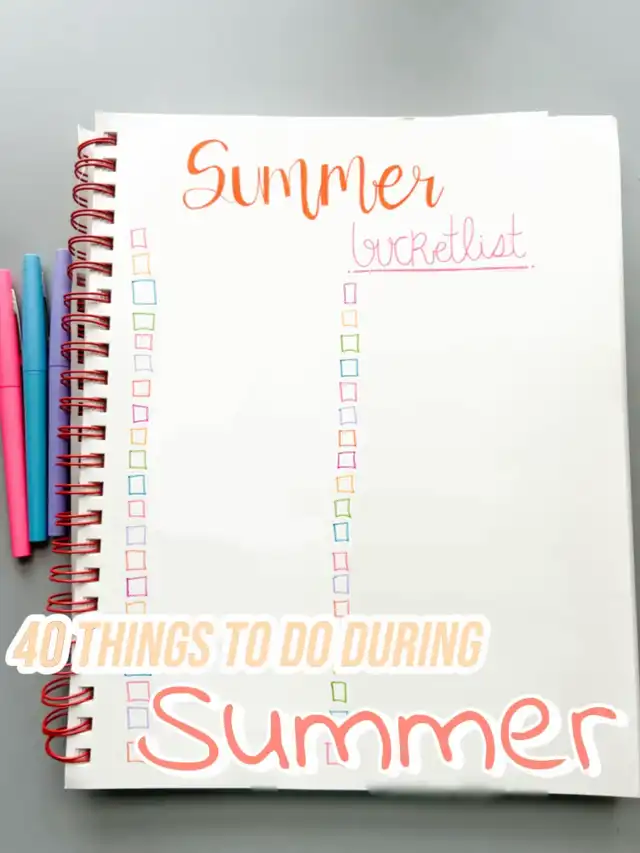 Summer
bucketlist
40 THINGS TO DO DURING
Summer